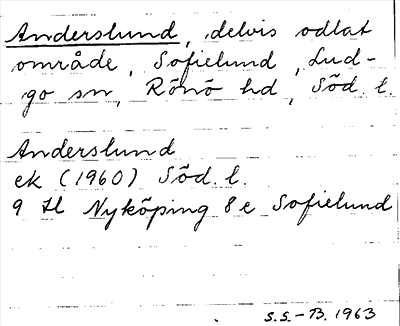 Anderslund, delvis odlat
område, Sofielund, Lud-
go sn, Rönö hd, Söd. l.
Anderslund
ek (1960) Söd. l.
9 H Nyköping 8 e Sofielund
S.S.-B. 1963